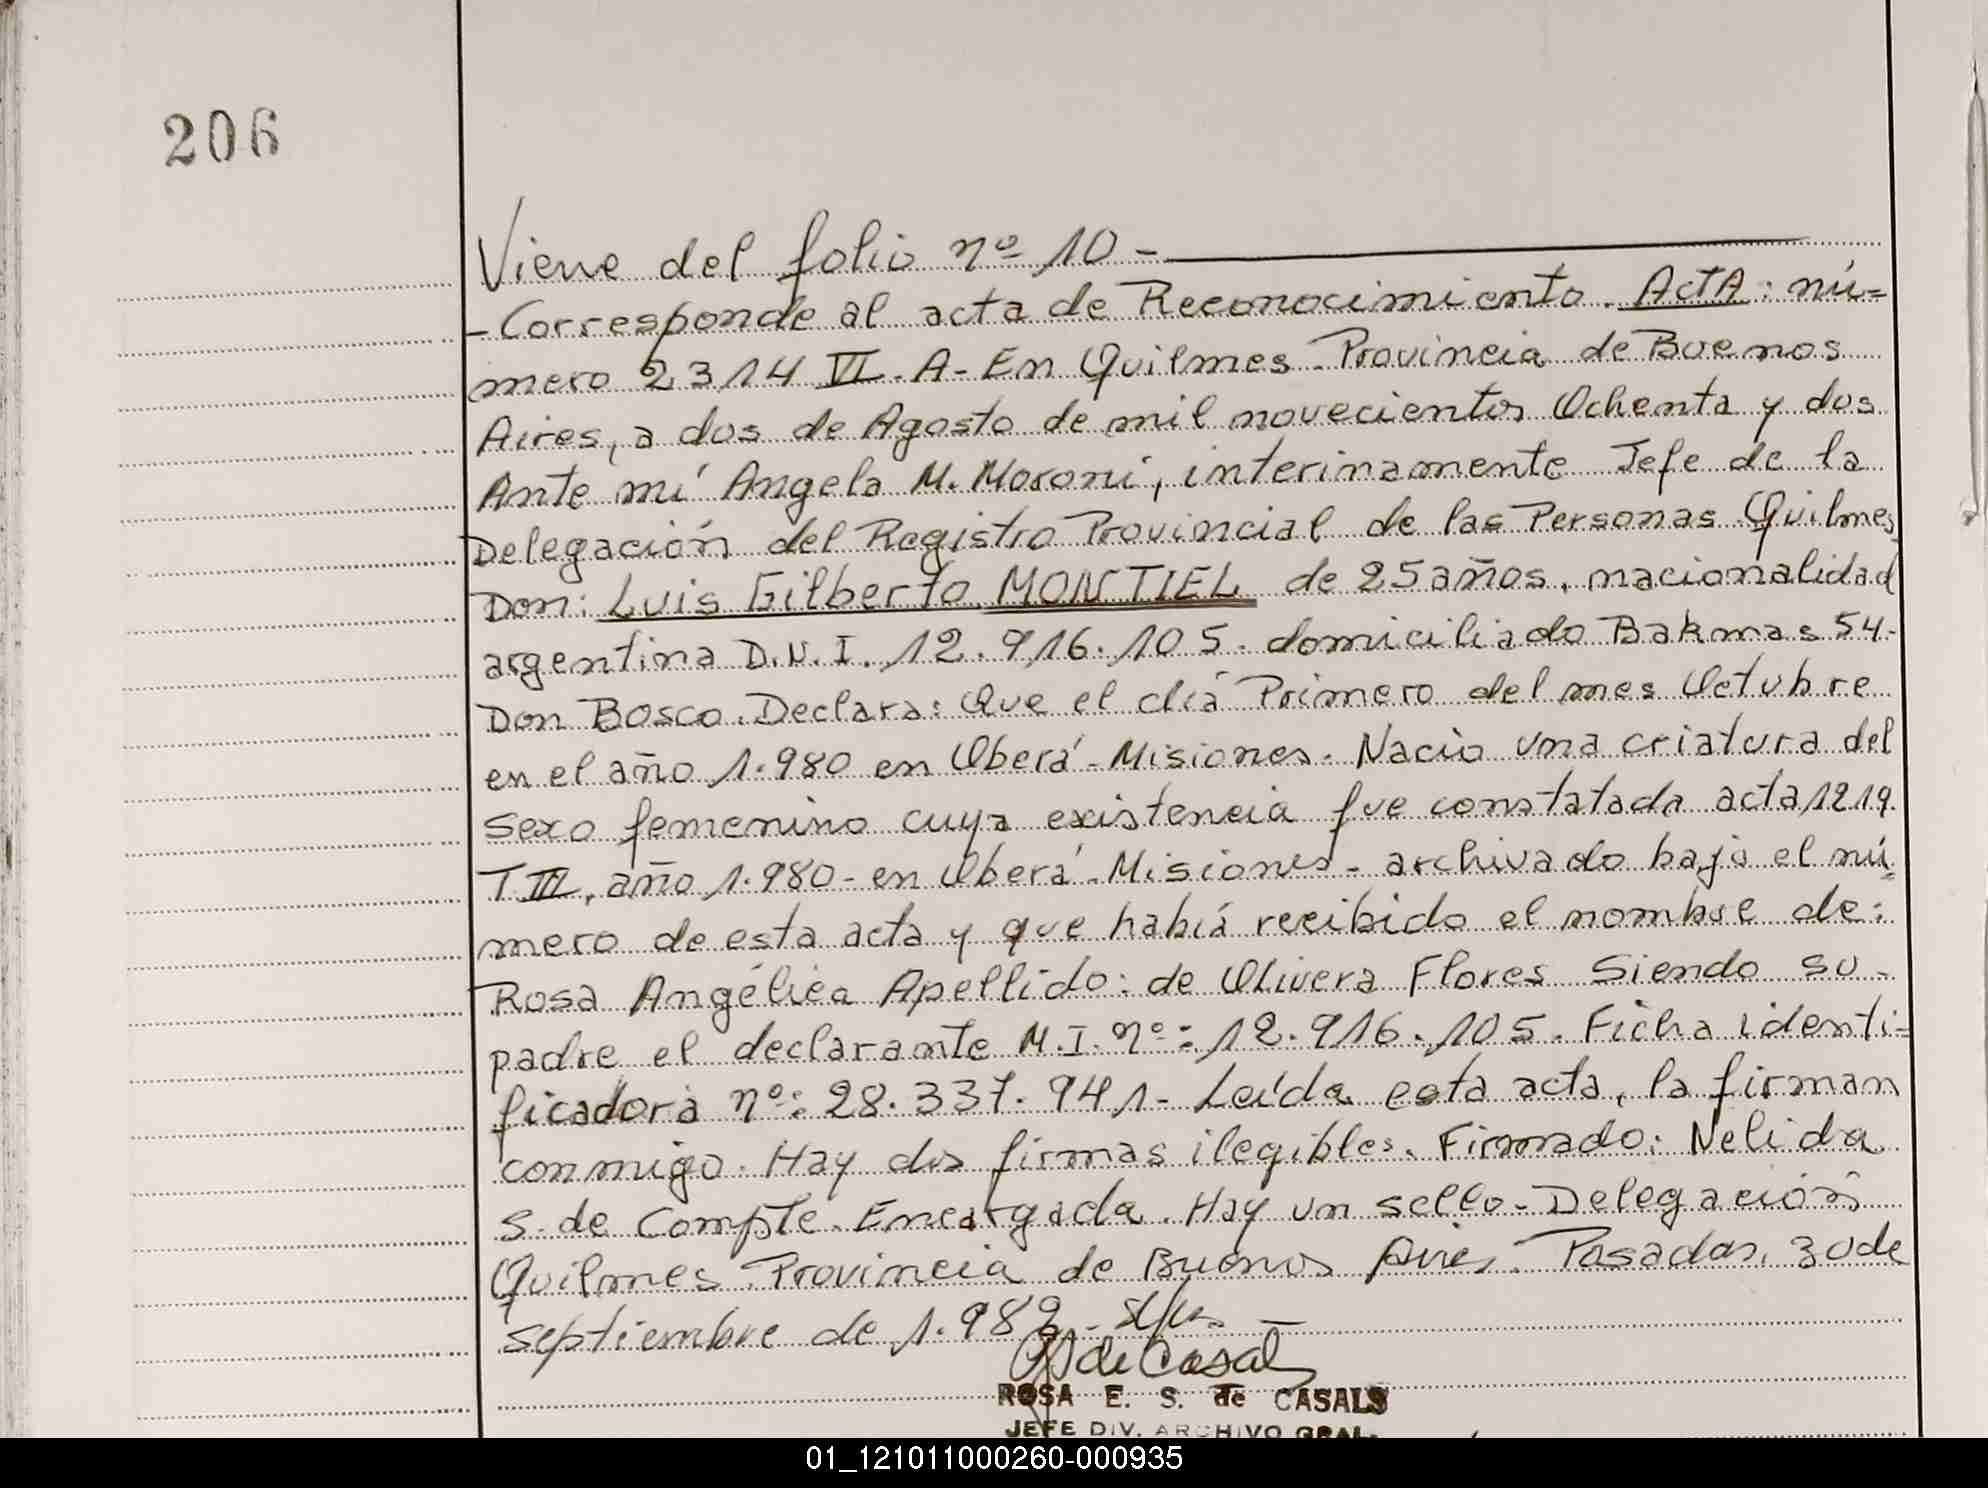 206
Viene del folio nº 10 -
- Corresponde al acta de Reconocimiento. ActA: nú=
mero 2314 VI. A- En Quilmes. Provincia de Buenos
Aires, a dos de Agosto de mil novecientos Ochenta y dos
Ante mí Angela M. Moroni, interinamente Jefe de la
Delegación del Registro Provincial de las Personas Quilmes
Don: Luis Gilberto MONTIEL de 25 años, nacionalidad
argentina D.N.I. 12.916.105. domiciliado Bakmas 54-
Don Bosco. Declara: Que el día Primero del mes Octubre
en el año 1.980 en Oberá - Misiones. Nació una criatura del
sexo femenino cuya existencia fue constatada acta 1219.
T III, año 1.980- en Oberá - Misiones - archivado bajo el nú=
mero de esta acta y que había recibido el nombre de:
Rosa Angélica Apellido: de Olivera Flores Siendo su-
padre el declarante M.I. nº: 12.916.105. Ficha identi=
ficadora nº: 28.337.941- Leída esta acta, la firman
conmigo. Hay dos firmas ilegibles. Firmado: Nelida
S. de Compte. Encargada. Hay un sello - Delegación
Quilmes. Provincia de Buenos Aires. Posadas, 30 de
septiembre de 1.982
de Casals
ROSA E. S. de CASALS
JEFE DIV. ARCHIVO GRAL.
01_121011000260-000935